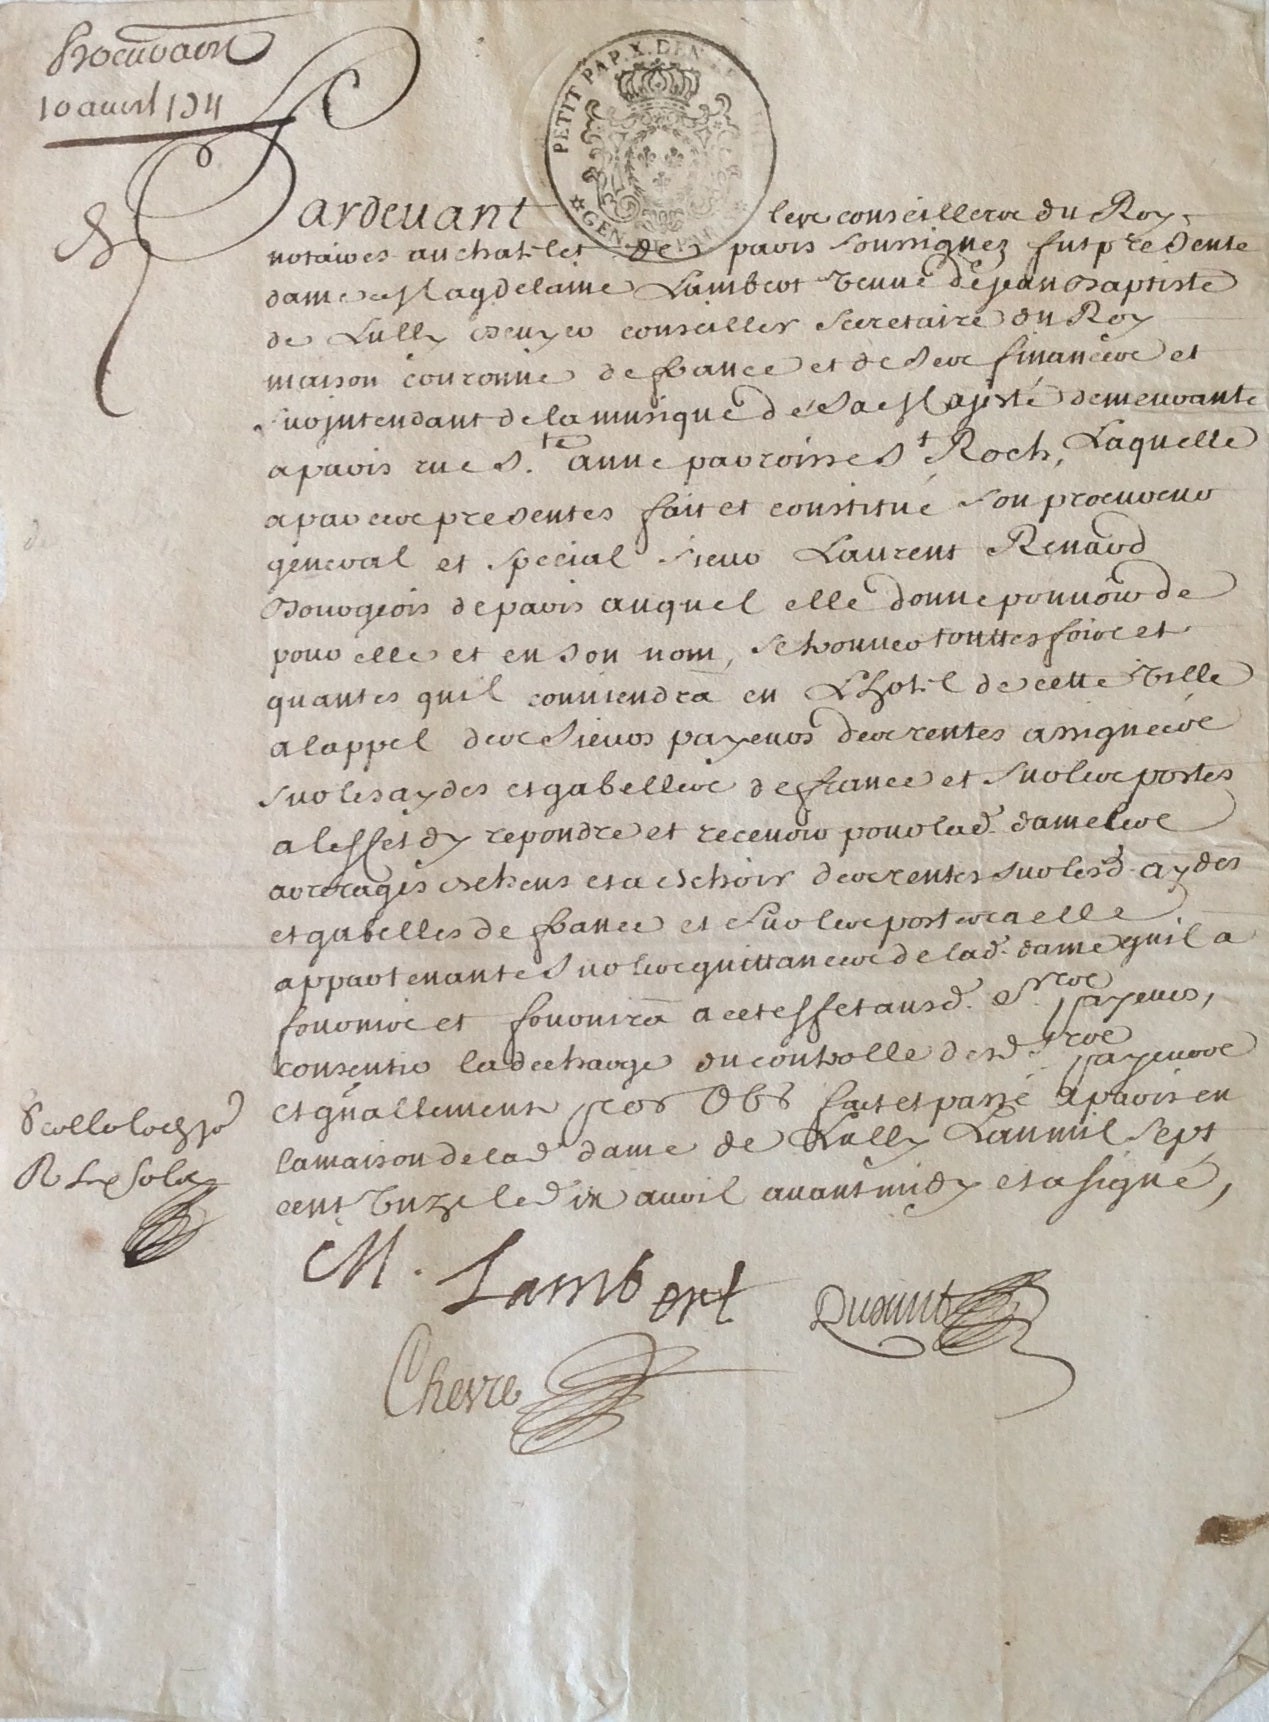 Procuraon
10 avril 1711
PETIT PAP. X. DEN
GEN. DE PARIS
Pardevant les conseillers du Roy,
notaires au chatelet de paris soussignez fut presente
dame Magdelaine Lambert veuve de Jean Baptiste
de Lully Escuyer conseiller secretaire du Roy
maison couronne de france et de ses finances et
surjntendant de la musique de Sa Majesté demeurante
a paris rue S.te anne parroisse St Roch, Laquelle
a par ces presentes fait et constitué son procureur
general et special sieur Laurent Renard
Bourgeois de paris auquel elle donne pouvoir de
pour elle et en son nom, se trouver touttes fois et
quantes quil conviendra en Lhotel de cette ville
a lappel des Sieurs payeurs des rentes assignées
sur les aydes et gabelles de france et sur les postes
a leffet dy repondre et recevoir pour lad. dame les
arrerages eschus et a eschoir des rentes sur lesd. aydes
et gabelles de france et sur les postes a elle
appartenantes sur les quittances de lad. dame quil a
fournies et fournira a cet effet ausd. Srs payeurs,
consentir la decharge du controlle desd. Srs payeurs
et gnallement pros Obs fait et passé a paris en
la maison de lad. dame de Lully Lan mil sept
cent unze le dix avril avant midy et a signé,
Scellé
M. Lambert
Chevre